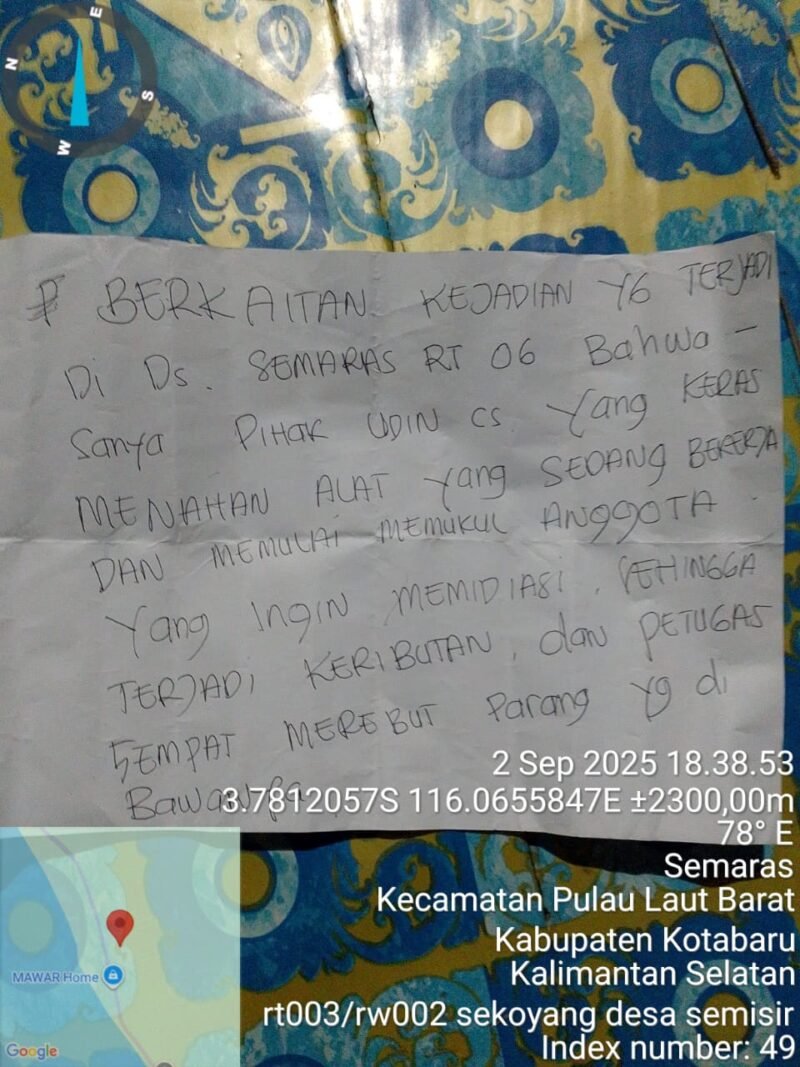 E
N
S
W
BERKAITAN KEJADIAN YG TERJADI
Di Ds. SEMARAS RT 06 Bahwa -
Sanya PIHAK UDIN CS Yang KERAS
MENAHAN ALAT Yang SEDANG BEKERJA
DAN MEMULAI MEMUKUL ANGGOTA
Yang INGIN MEMIDIASI, SEHINGGA
TERJADI KERIBUTAN, dan PETUGAS
SEMPAT MEREBUT Parang yg di
Bawanya
2 Sep 2025 18.38.53
3.7812057S 116.0655847E ±2300,00m
78° E
Semaras
Kecamatan Pulau Laut Barat
Kabupaten Kotabaru
Kalimantan Selatan
rt003/rw002 sekoyang desa semisir
Index number: 49
MAWAR Home
Google